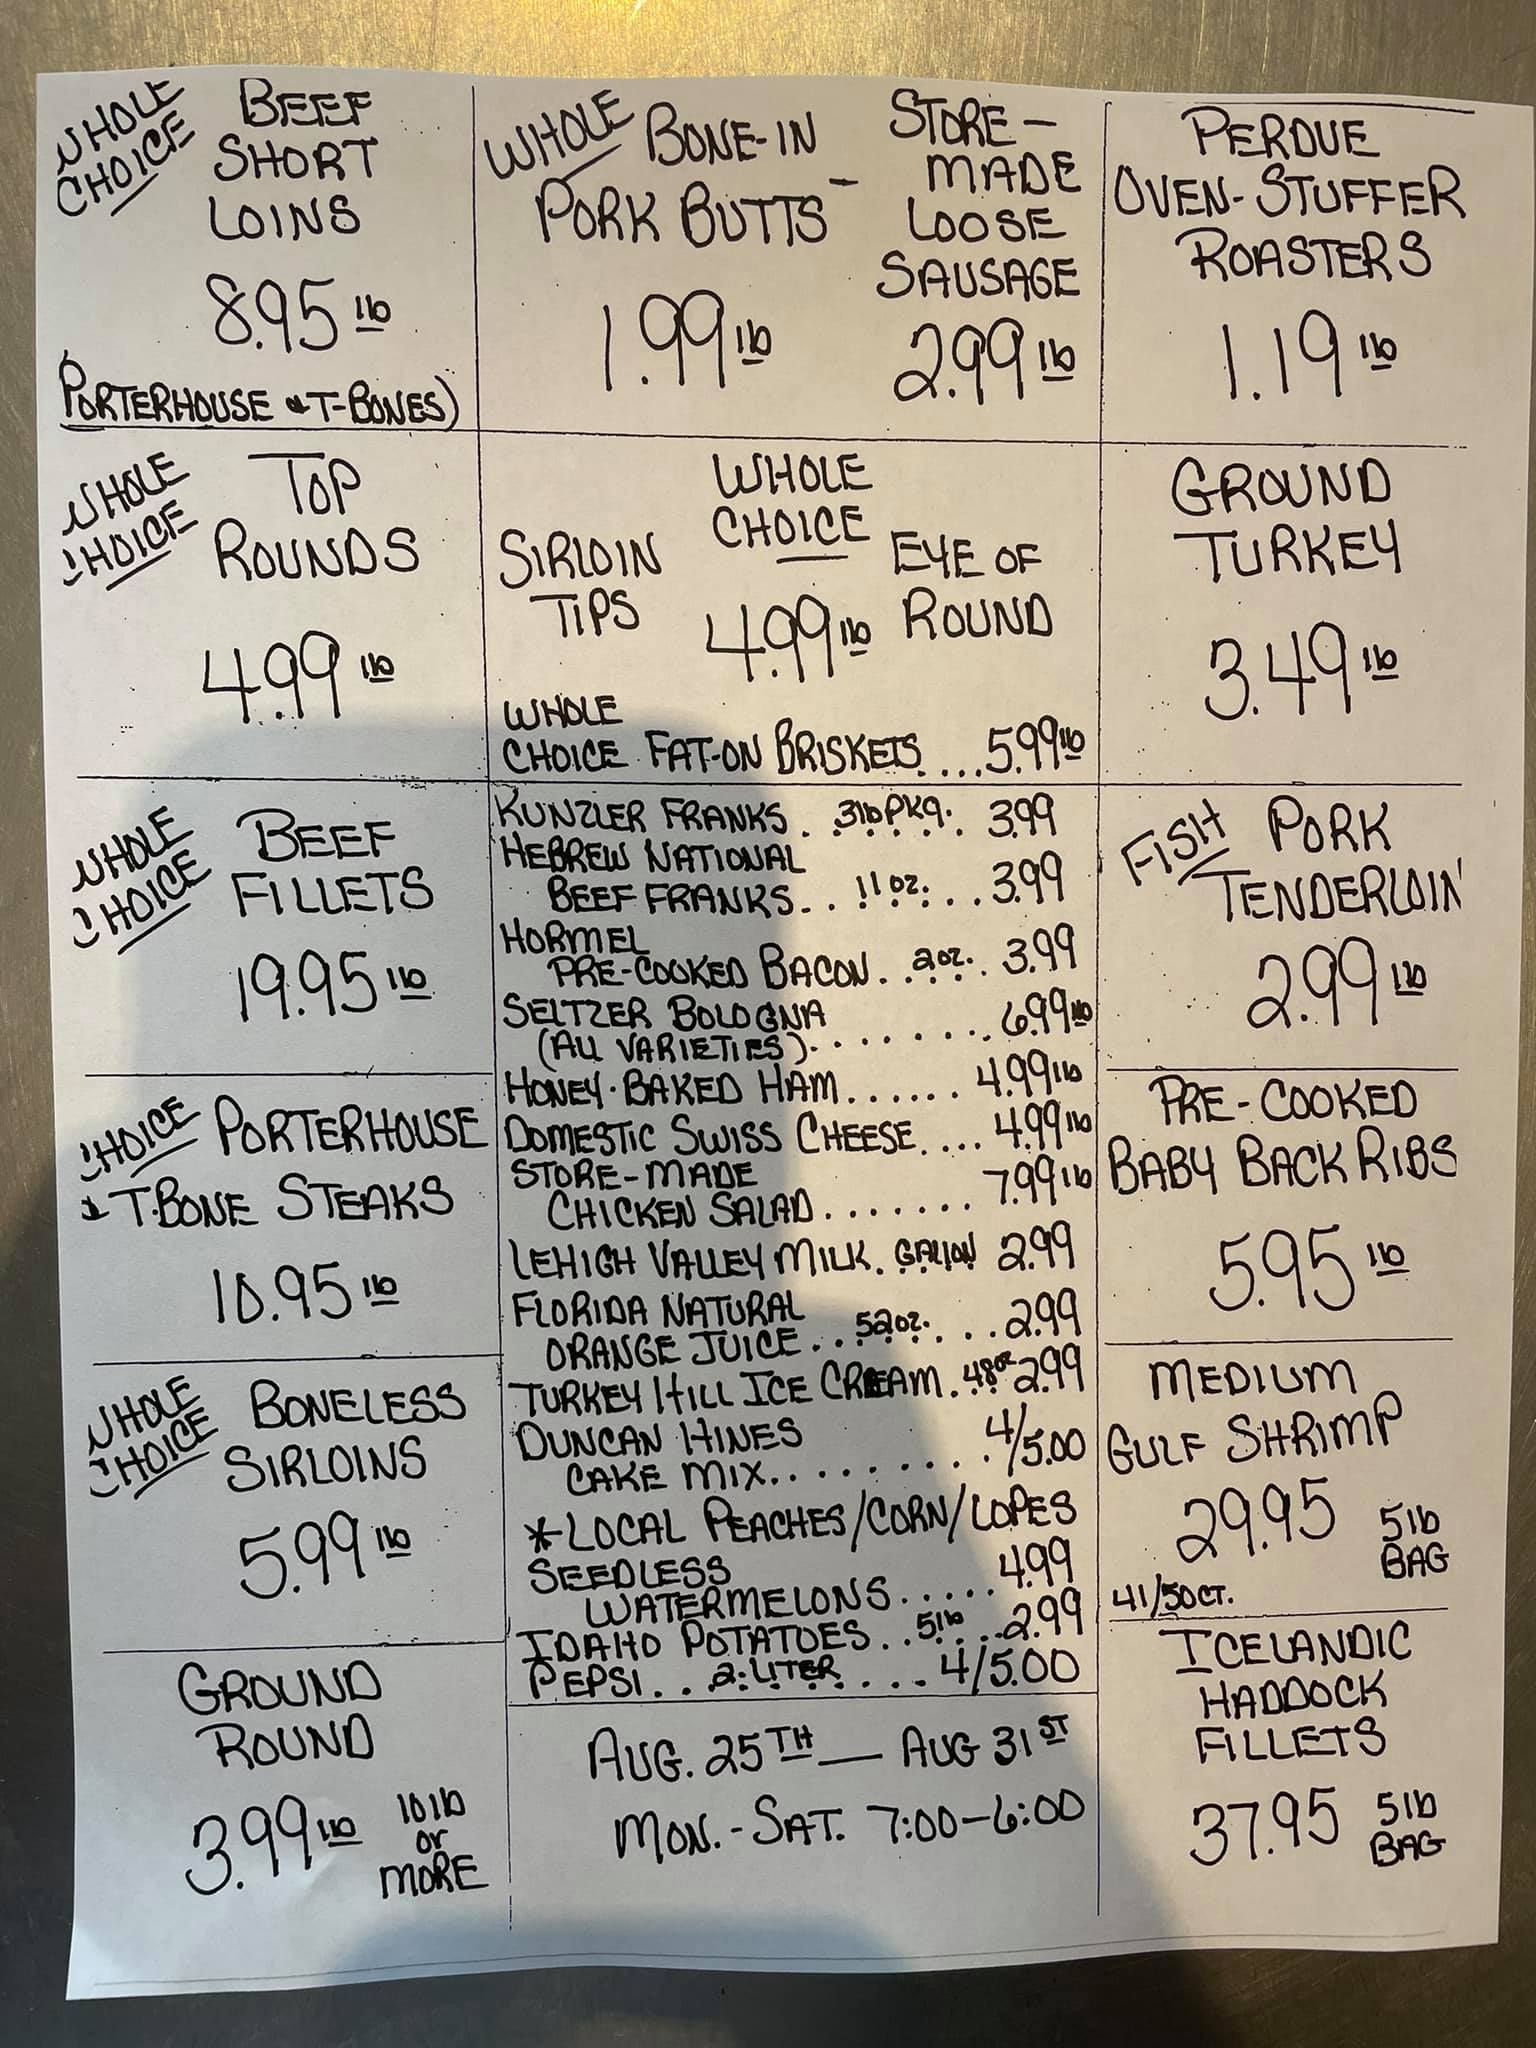 WHOLE
CHOICE
BEEF
SHORT
LOINS
8.95 lb
PORTERHOUSE & T-BONES)
WHOLE BONE-IN
PORK BUTTS -
1.99 lb
STORE-
MADE
LOOSE
SAUSAGE
2.99 lb
PERDUE
OVEN-STUFFER
ROASTERS
1.19 lb
WHOLE
CHOICE
TOP
ROUNDS
4.99 lb
WHOLE
CHOICE
SIRLOIN
TIPS
EYE OF
ROUND
4.99 lb
WHOLE
CHOICE FAT-ON BRISKETS....5.99 lb
GROUND
TURKEY
3.49 lb
WHOLE
CHOICE
BEEF
FILLETS
19.95 lb
CHOICE PORTERHOUSE
& T-BONE STEAKS
10.95 lb
WHOLE
CHOICE
BONELESS
SIRLOINS
5.99 lb
GROUND
ROUND
3.99 lb
10 lb
or
MORE
KUNZLER FRANKS. 3 lb pkg. 3.99
HEBREW NATIONAL
BEEF FRANKS.. 11 oz. ... 3.99
HORMEL
PRE-COOKED BACON. 2 oz. . 3.99
SELTZER BOLOGNA 6.99 lb
(ALL VARIETIES)........
HONEY-BAKED HAM...... 4.99 lb
DOMESTIC SWISS CHEESE.... 4.99 lb
STORE-MADE 7.99 lb
CHICKEN SALAD.......
LEHIGH VALLEY MILK. GALLON 2.99
FLORIDA NATURAL 2.99
ORANGE JUICE... 52 oz. ...
TURKEY HILL ICE CREAM. 48 oz 2.99
DUNCAN HINES 4/5.00
CAKE MIX..........
*LOCAL PEACHES/CORN/LOPES
SEEDLESS 4.99
WATERMELONS.....
IDAHO POTATOES.. 5 lb ..2.99
PEPSI... 2-LITER..... 4/5.00
AUG. 25TH — AUG 31ST
MON.-SAT. 7:00-6:00
FISH
PORK
TENDERLOIN
2.99 lb
PRE-COOKED
BABY BACK RIBS
5.95 lb
MEDIUM
GULF SHRIMP
29.95 5 lb
BAG
41/50 CT.
ICELANDIC
HADDOCK
FILLETS
37.95 5 lb
BAG